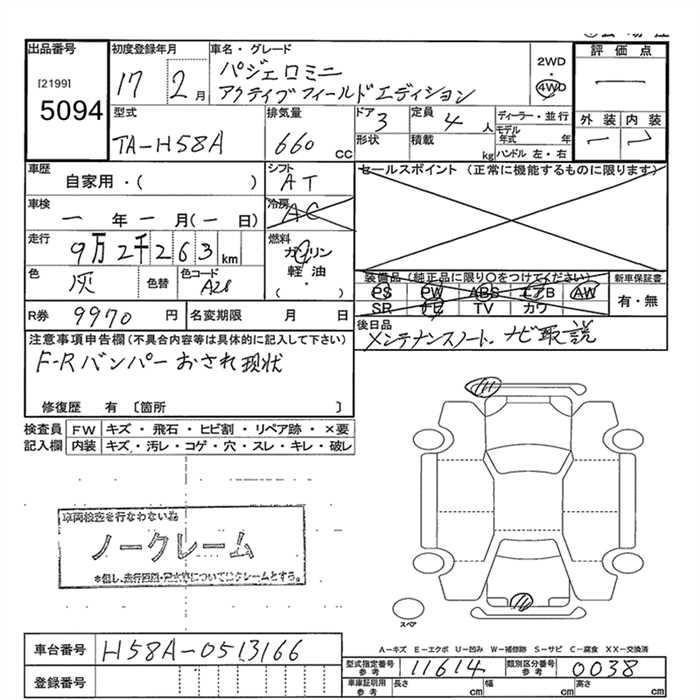 出品番号 初度登録年月 車名・グレード 2WD 評価点
[2199] 17 2月 パジェロミニ ・ 一
5094 アクティブフィールドエディション 4WD
型式 排気量 ドア 3 定員 4人 ディーラー・並行 外装 内装
TA-H58A 660cc 形状 積載 kg モデル年式 年
ハンドル 左・右
車歴 シフト セールスポイント (正常に機能するものに限ります)
自家用・( ) AT
車検 冷房
一年一月(一日) AC
走行 燃料
9万2千263km ガソリン
色 色替 色コード 軽油・
灰 A28 ( )
装備品(純正品に限り〇をつけてください) 新車保証書
PS PW ABS エアB AW 有・無
SR ナビ TV カワ
R券 9970円 名変期限 月 日 後日品
メンテナンスノート、ナビ取説
注意事項申告欄(不具合内容等は具体的に記入して下さい)
F-Rバンパーおされ現状
修復歴 有〔箇所 〕
検査員 FW キズ・飛石・ヒビ割・リペア跡・×要
記入欄 内装 キズ・汚レ・コゲ・穴・スレ・キレ・破レ
車両検査を行なわない為
ノークレーム
*但し、走行距離・冠水等についてはクレームとする。
スペア
A-キズ E-エクボ U-凹み W-補修跡 S-サビ C-腐食 XX-交換済
車台番号 H58A-0513166
型式指定番号 参考 11614 類別区分番号 参考 0038
登録番号 車庫証明用 参考 長さ cm 幅 cm 高さ cm